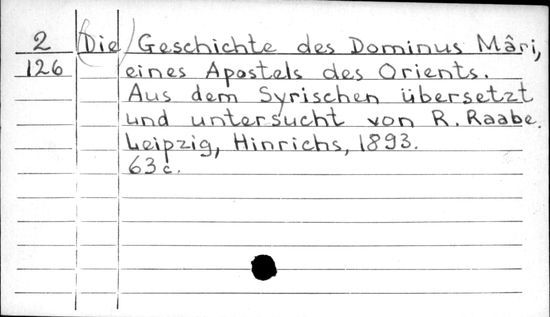 2 (Die) Geschichte des Dominus Mâri,
126 eines Apostels des Orients.
Aus dem Syrischen übersetzt
und untersucht von R. Raabe.
Leipzig, Hinrichs, 1893.
63 c.